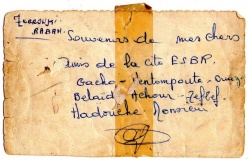 Zerroukhi
RABAH.
Souvenirs de mes chers
Amis de la cité ESBR.
Gacho - Pentompoute - Ouaz
Belaid Achour - Zeflef
Hadouche